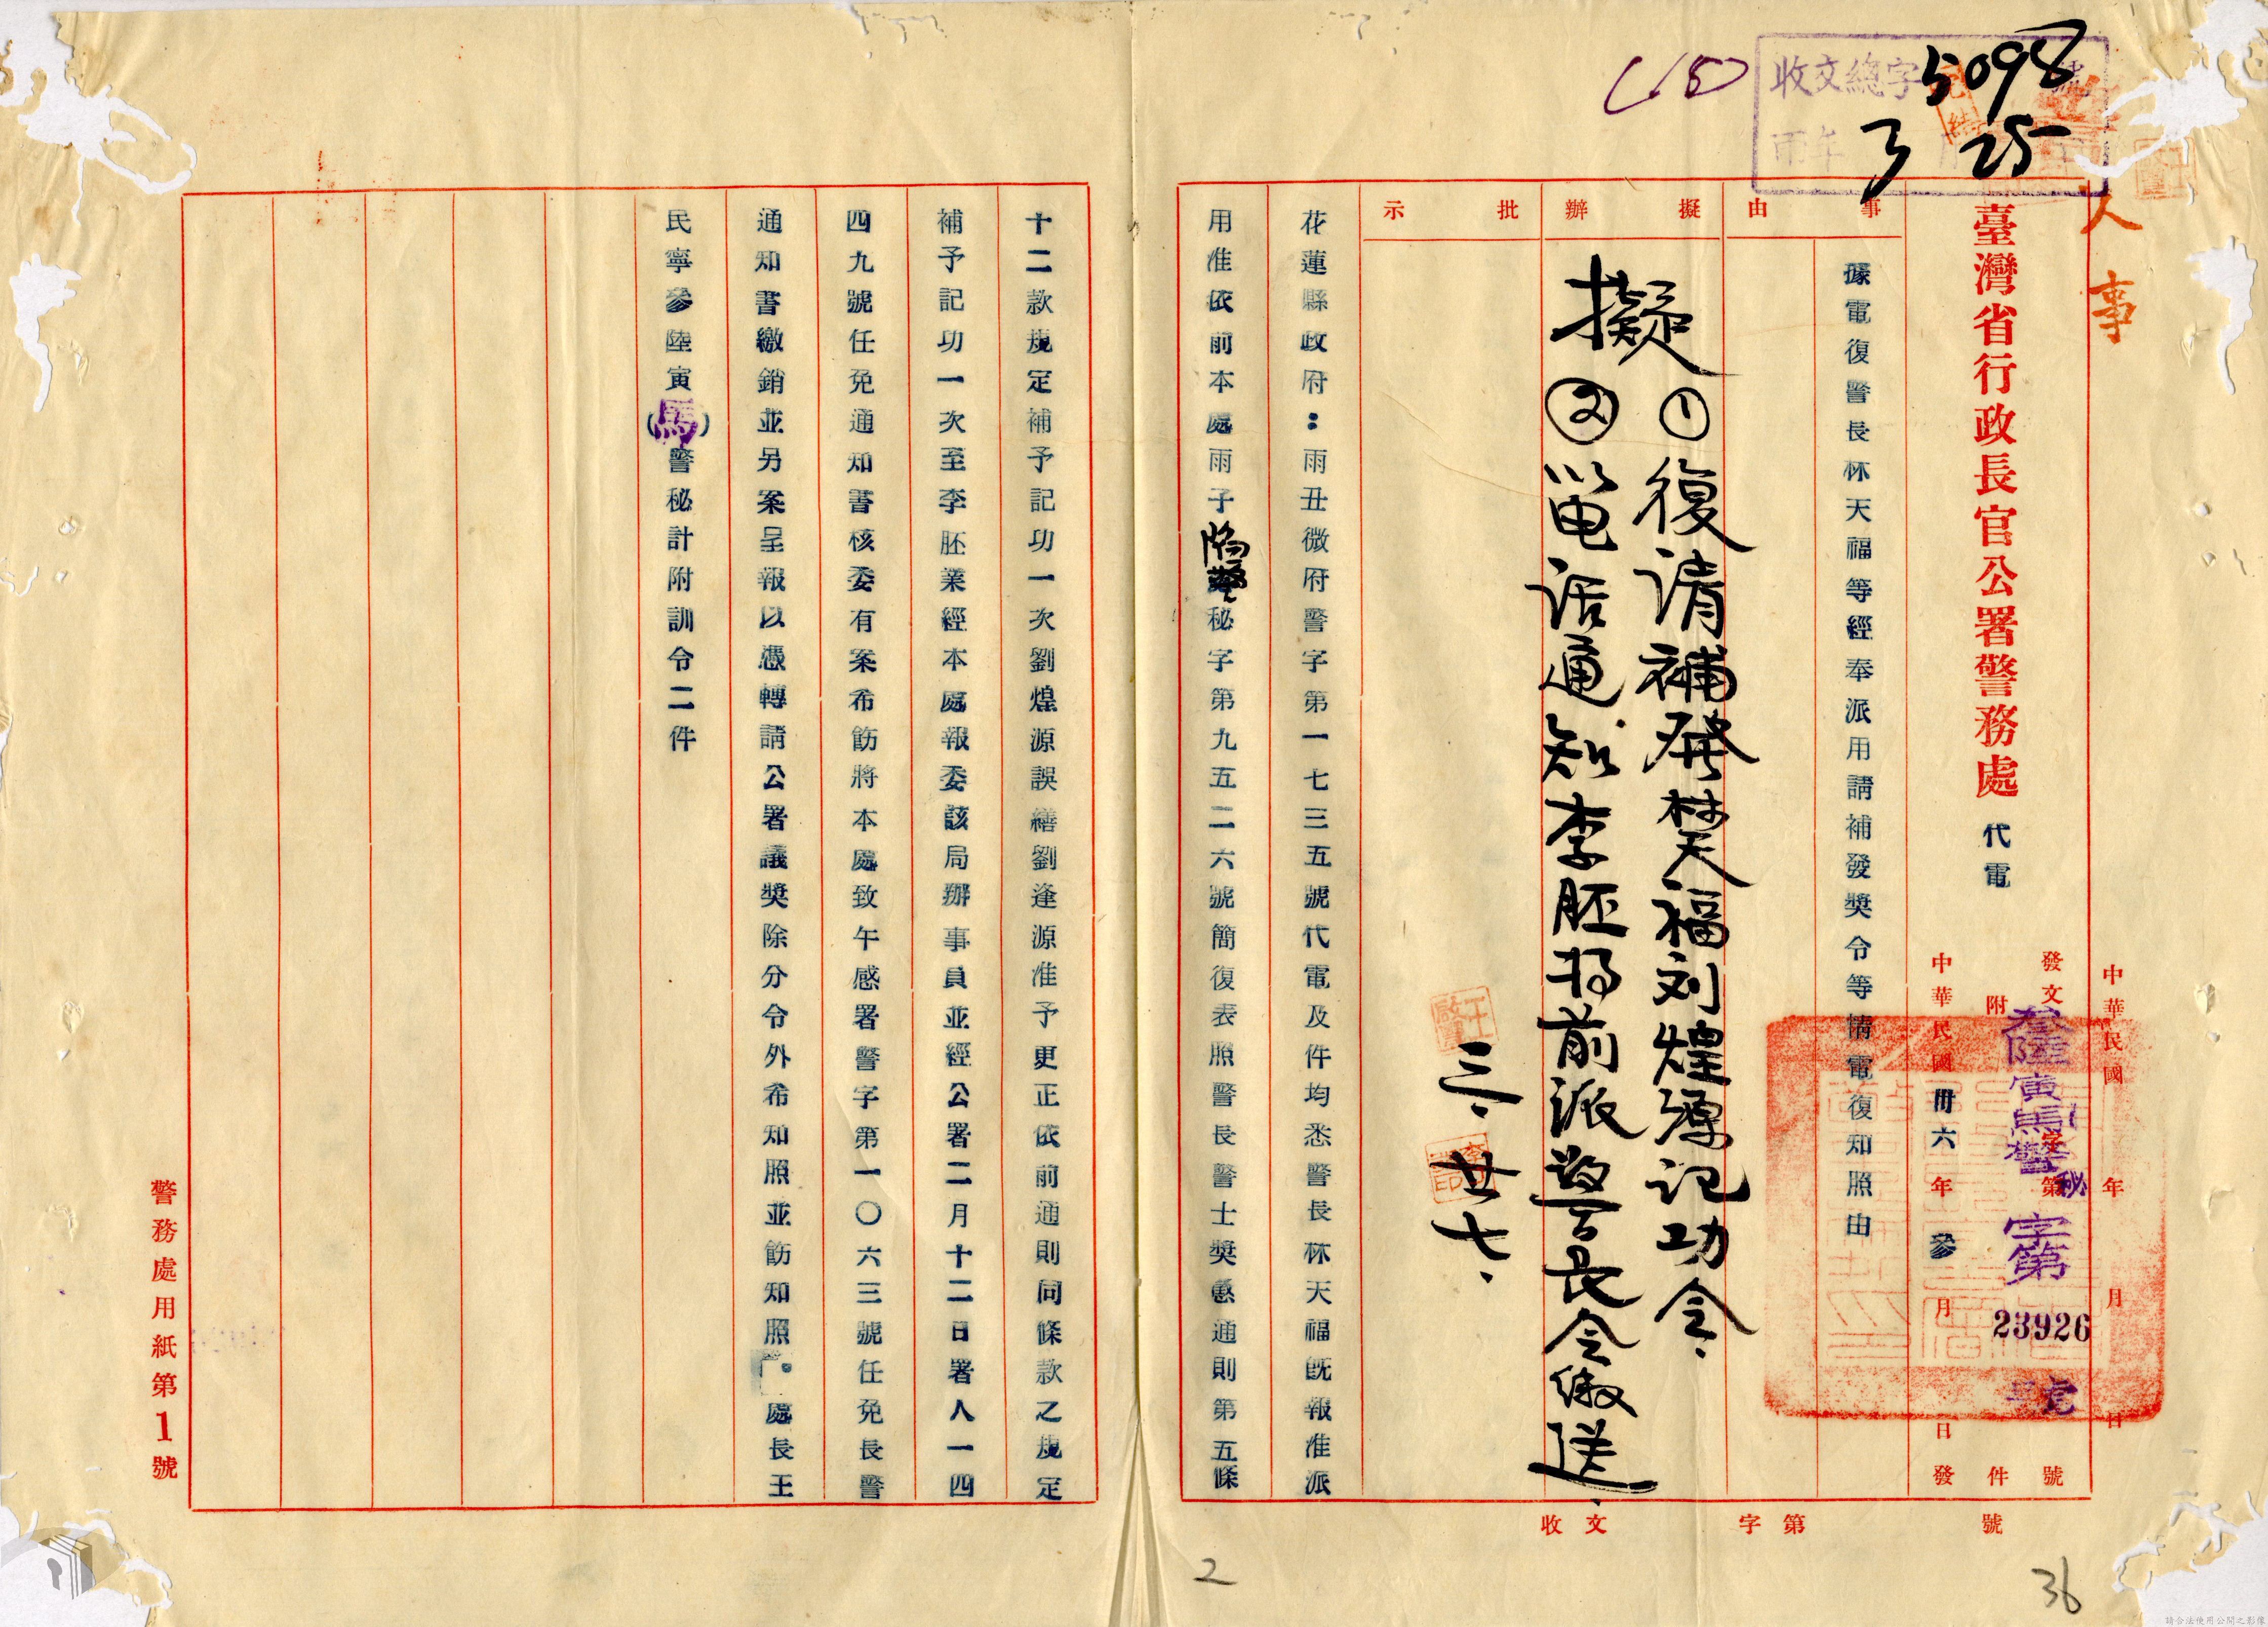 收文總字 5098 號
年 3 月 25
人事
臺灣省行政長官公署警務處 代電
中華民國 年 月 日
發文 字第 號
參陸寅馬警秘字第 23926 號
附 件
中華民國卅六年參月 日發
事由
據電復警長林天福等經奉派用請補發獎令等情電復知照由
擬辦
擬①復請補発林天福刘煌源记功令.
②以电话通知李胚将前派警長令缴送.
批示
三.廿七.
花蓮縣政府：雨丑微府警字第一七三五號代電及件均悉警長林天福旣報准派
用准依前本處雨子陷警秘字第九五二六號簡復表照警長警士獎懲通則第五條
十二款規定補予記功一次劉煌源誤繕劉逢源准予更正依前通則同條款之規定
補予記功一次至李胚業經本處報委該局辦事員並經公署二月十二日署人一四
四九號任免通知書核委有案希飭將本處致午感署警字第一〇六三號任免長警
通知書繳銷並另案呈報以憑轉請公署議獎除分令外希知照並飭知照。處長王
民寧參陸寅(馬)警秘計附訓令二件
收文 字第 號
警務處用紙第1號
2
36
請合法使用公開之影像